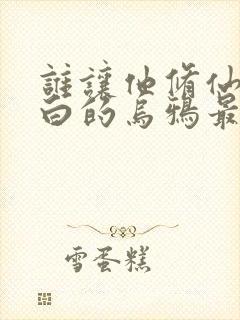 誰讓他脩仙
白的烏鴉最
雪蛋糕